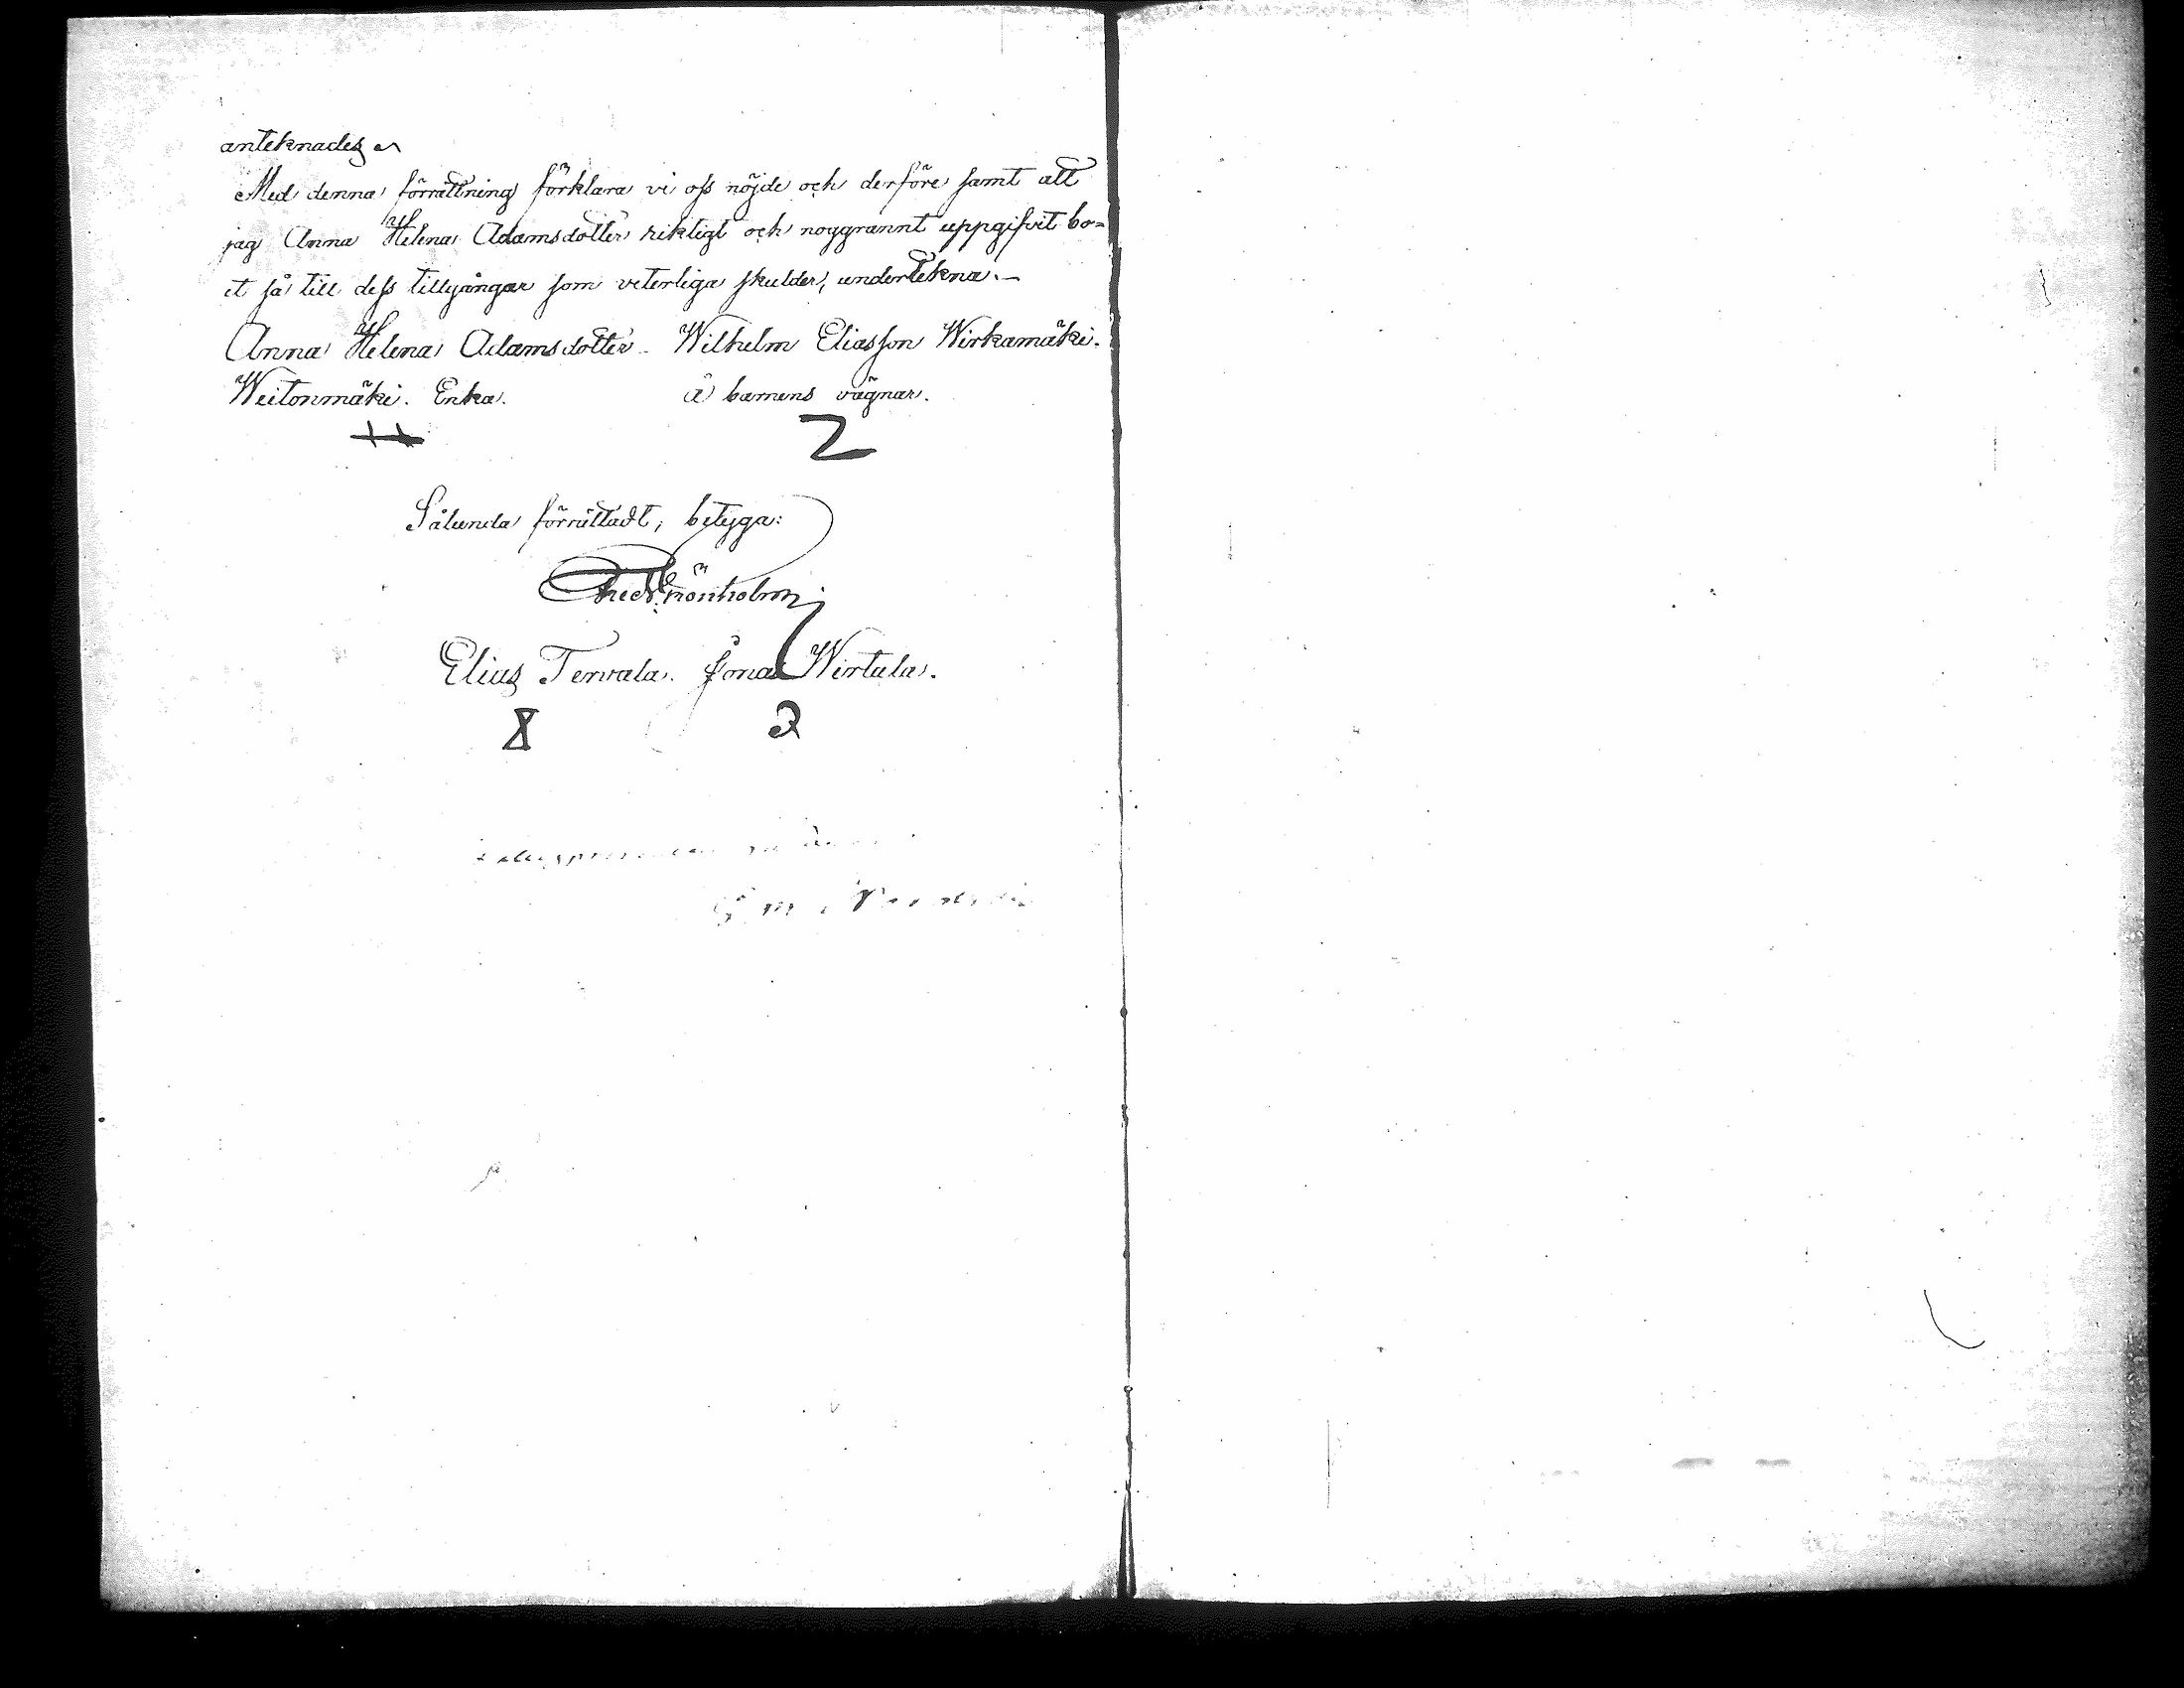 anteknades
Med denna förrättning förklara vi oss nöjde och derföre samt att
jag Anna Helena Adamsdotter riktigt och noggrannt uppgifvit bo-
et så till dess tillgångar som veterliga skulder, undertekna.—
Anna Helena Adamsdotter Wilhelm Eliasson Wirkamäki.
Weitonmäki. Enka. å barnens vägnar.
Sålunda förrättadt, betyga:
Elias Tervala. Jonas Wirtala.